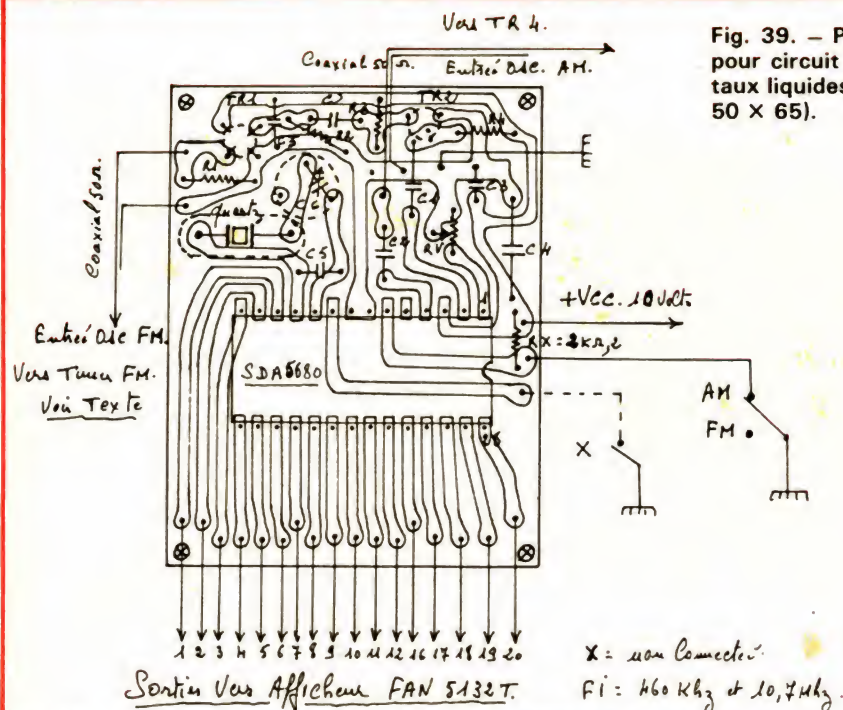 Fig. 39. — P
pour circuit
taux liquides
50 X 65).
Vers TR 4.
Coaxial 50Ω.
Entrée OSC. AM.
TR1
C2
R3
TR2
R4
C1
C3
C4
R1
R2
Quartz
C5
RV
E
Coaxial 50Ω.
Entrée OSC FM.
Vers Tuner FM.
Voir Texte
+VCC. 10 Volts
RX = 2KΩ,2
SDA5680
1
AM
FM
X
1 2 3 4 5 6 7 8 9 10 11 12 16 17 18 19 20
Sorties Vers Afficheur FAN 5132T.
X = non Connecté.
Fi = 460 Khz et 10,7 Mhz.